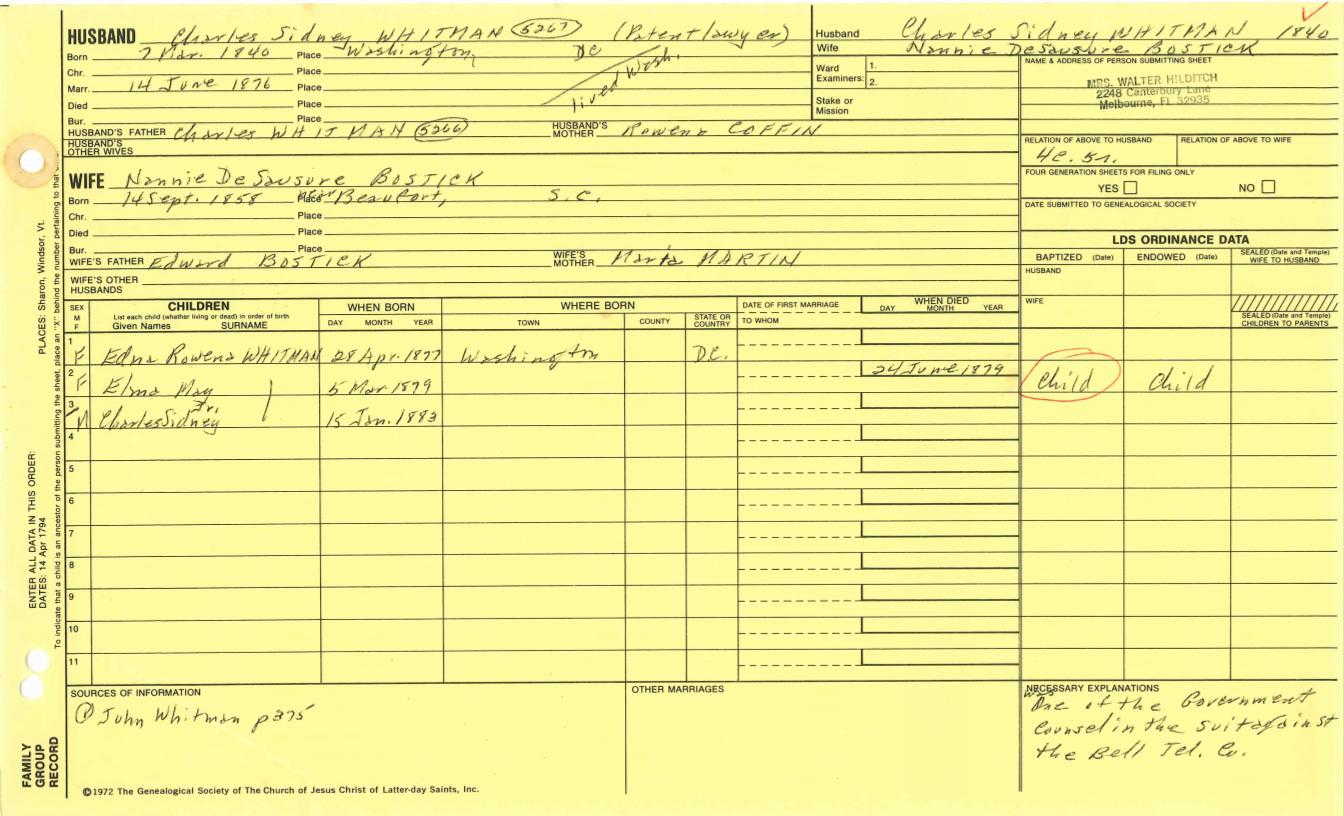 HUSBAND Charles Sidney WHITMAN 5267 (Patent lawyer)
Born 7 Mar. 1840 Place Washington DC
Chr. Place
Marr. 14 June 1876 Place lived Wash.
Died Place
Bur. Place
HUSBAND'S FATHER Charles WHITMAN 5266 HUSBAND'S MOTHER Rowena COFFIN
HUSBAND'S OTHER WIVES
WIFE Nannie DeSausure BOSTICK
Born 14 Sept. 1858 Place near Beaufort, S.C.
Chr. Place
Died Place
Bur. Place
WIFE'S FATHER Edward BOSTICK WIFE'S MOTHER Maria MARTIN
WIFE'S OTHER HUSBANDS
Husband Charles Sidney WHITMAN 1840
Wife Nannie DeSausure BOSTICK
Ward Examiners: 1.
2.
Stake or Mission
NAME & ADDRESS OF PERSON SUBMITTING SHEET
MRS. WALTER HILDITCH
2248 Canterbury Lane
Melbourne, FL 32935
RELATION OF ABOVE TO HUSBAND RELATION OF ABOVE TO WIFE
4c. 5r.
FOUR GENERATION SHEETS FOR FILING ONLY
YES NO
DATE SUBMITTED TO GENEALOGICAL SOCIETY
LDS ORDINANCE DATA
BAPTIZED (Date) ENDOWED (Date) SEALED (Date and Temple) WIFE TO HUSBAND
HUSBAND
WIFE
SEALED (Date and Temple) CHILDREN TO PARENTS
SEX M F CHILDREN WHEN BORN WHERE BORN DATE OF FIRST MARRIAGE WHEN DIED
List each child (whether living or dead) in order of birth
Given Names SURNAME DAY MONTH YEAR TOWN COUNTY STATE OR COUNTRY TO WHOM DAY MONTH YEAR
1 F Edna Rowena WHITMAN 28 Apr. 1877 Washington DC.
2 F Elma May 5 Mar 1879 24 June 1879 Child Child
3 M Charles Sidney Jr. 15 Jan. 1883
4
5
6
7
8
9
10
11
SOURCES OF INFORMATION
① John Whitman p 375
OTHER MARRIAGES
NECESSARY EXPLANATIONS
was One of the Government
Counsel in the suit against
the Bell Tel. Co.
©1972 The Genealogical Society of The Church of Jesus Christ of Latter-day Saints, Inc.
FAMILY GROUP RECORD
ENTER ALL DATA IN THIS ORDER:
DATES: 14 Apr 1794
PLACES: Sharon, Windsor, Vt.
To indicate that a child is an ancestor of the person submitting the sheet, place an "X" behind the number pertaining to that